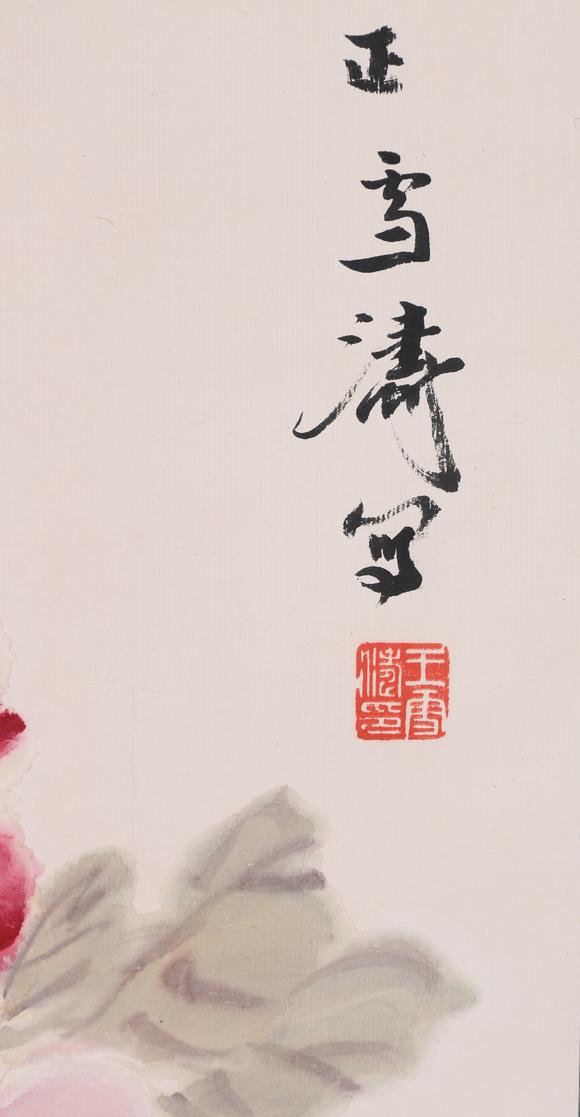 正雪濤写
王雪濤印